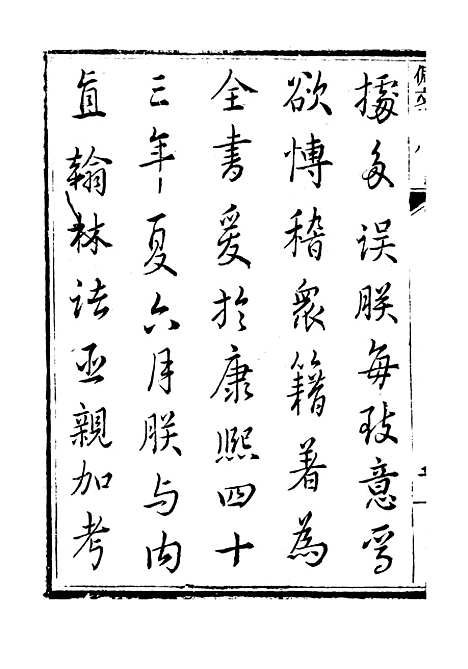 據多誤朕每致意焉
欲博稽衆籍著為
全書爰於康熙四十
三年夏六月朕与内
直翰林諸臣親加考